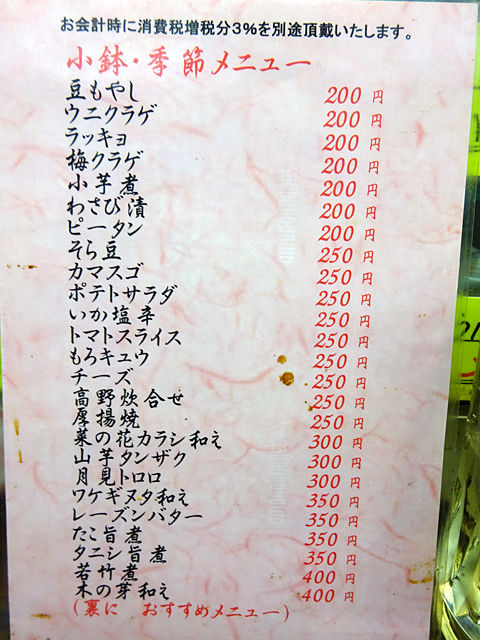 お会計時に消費税増税分3%を別途頂戴いたします。
小鉢・季節メニュー
豆もやし 200 円
ウニクラゲ 200 円
ラッキョ 200 円
梅クラゲ 200 円
小芋煮 200 円
わさび漬 200 円
ピータン 200 円
そら豆 250 円
カマスゴ 250 円
ポテトサラダ 250 円
いか塩辛 250 円
トマトスライス 250 円
もろキュウ 250 円
チーズ 250 円
高野炊合せ 250 円
厚揚焼 250 円
菜の花カラシ和え 300 円
山芋タンザク 300 円
月見トロロ 300 円
ワケギヌタ和え 350 円
レーズンバター 350 円
たこ旨煮 350 円
タニシ旨煮 350 円
若竹煮 400 円
木の芽和え 400 円
(裏に おすすめメニュー)